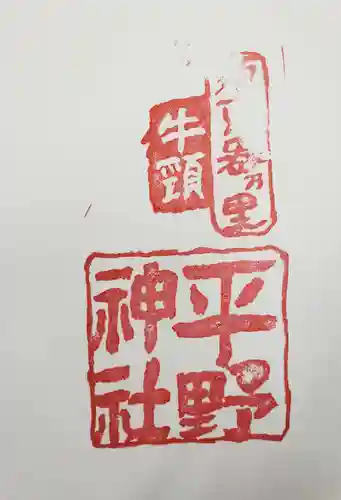 牛頸
平野
神社